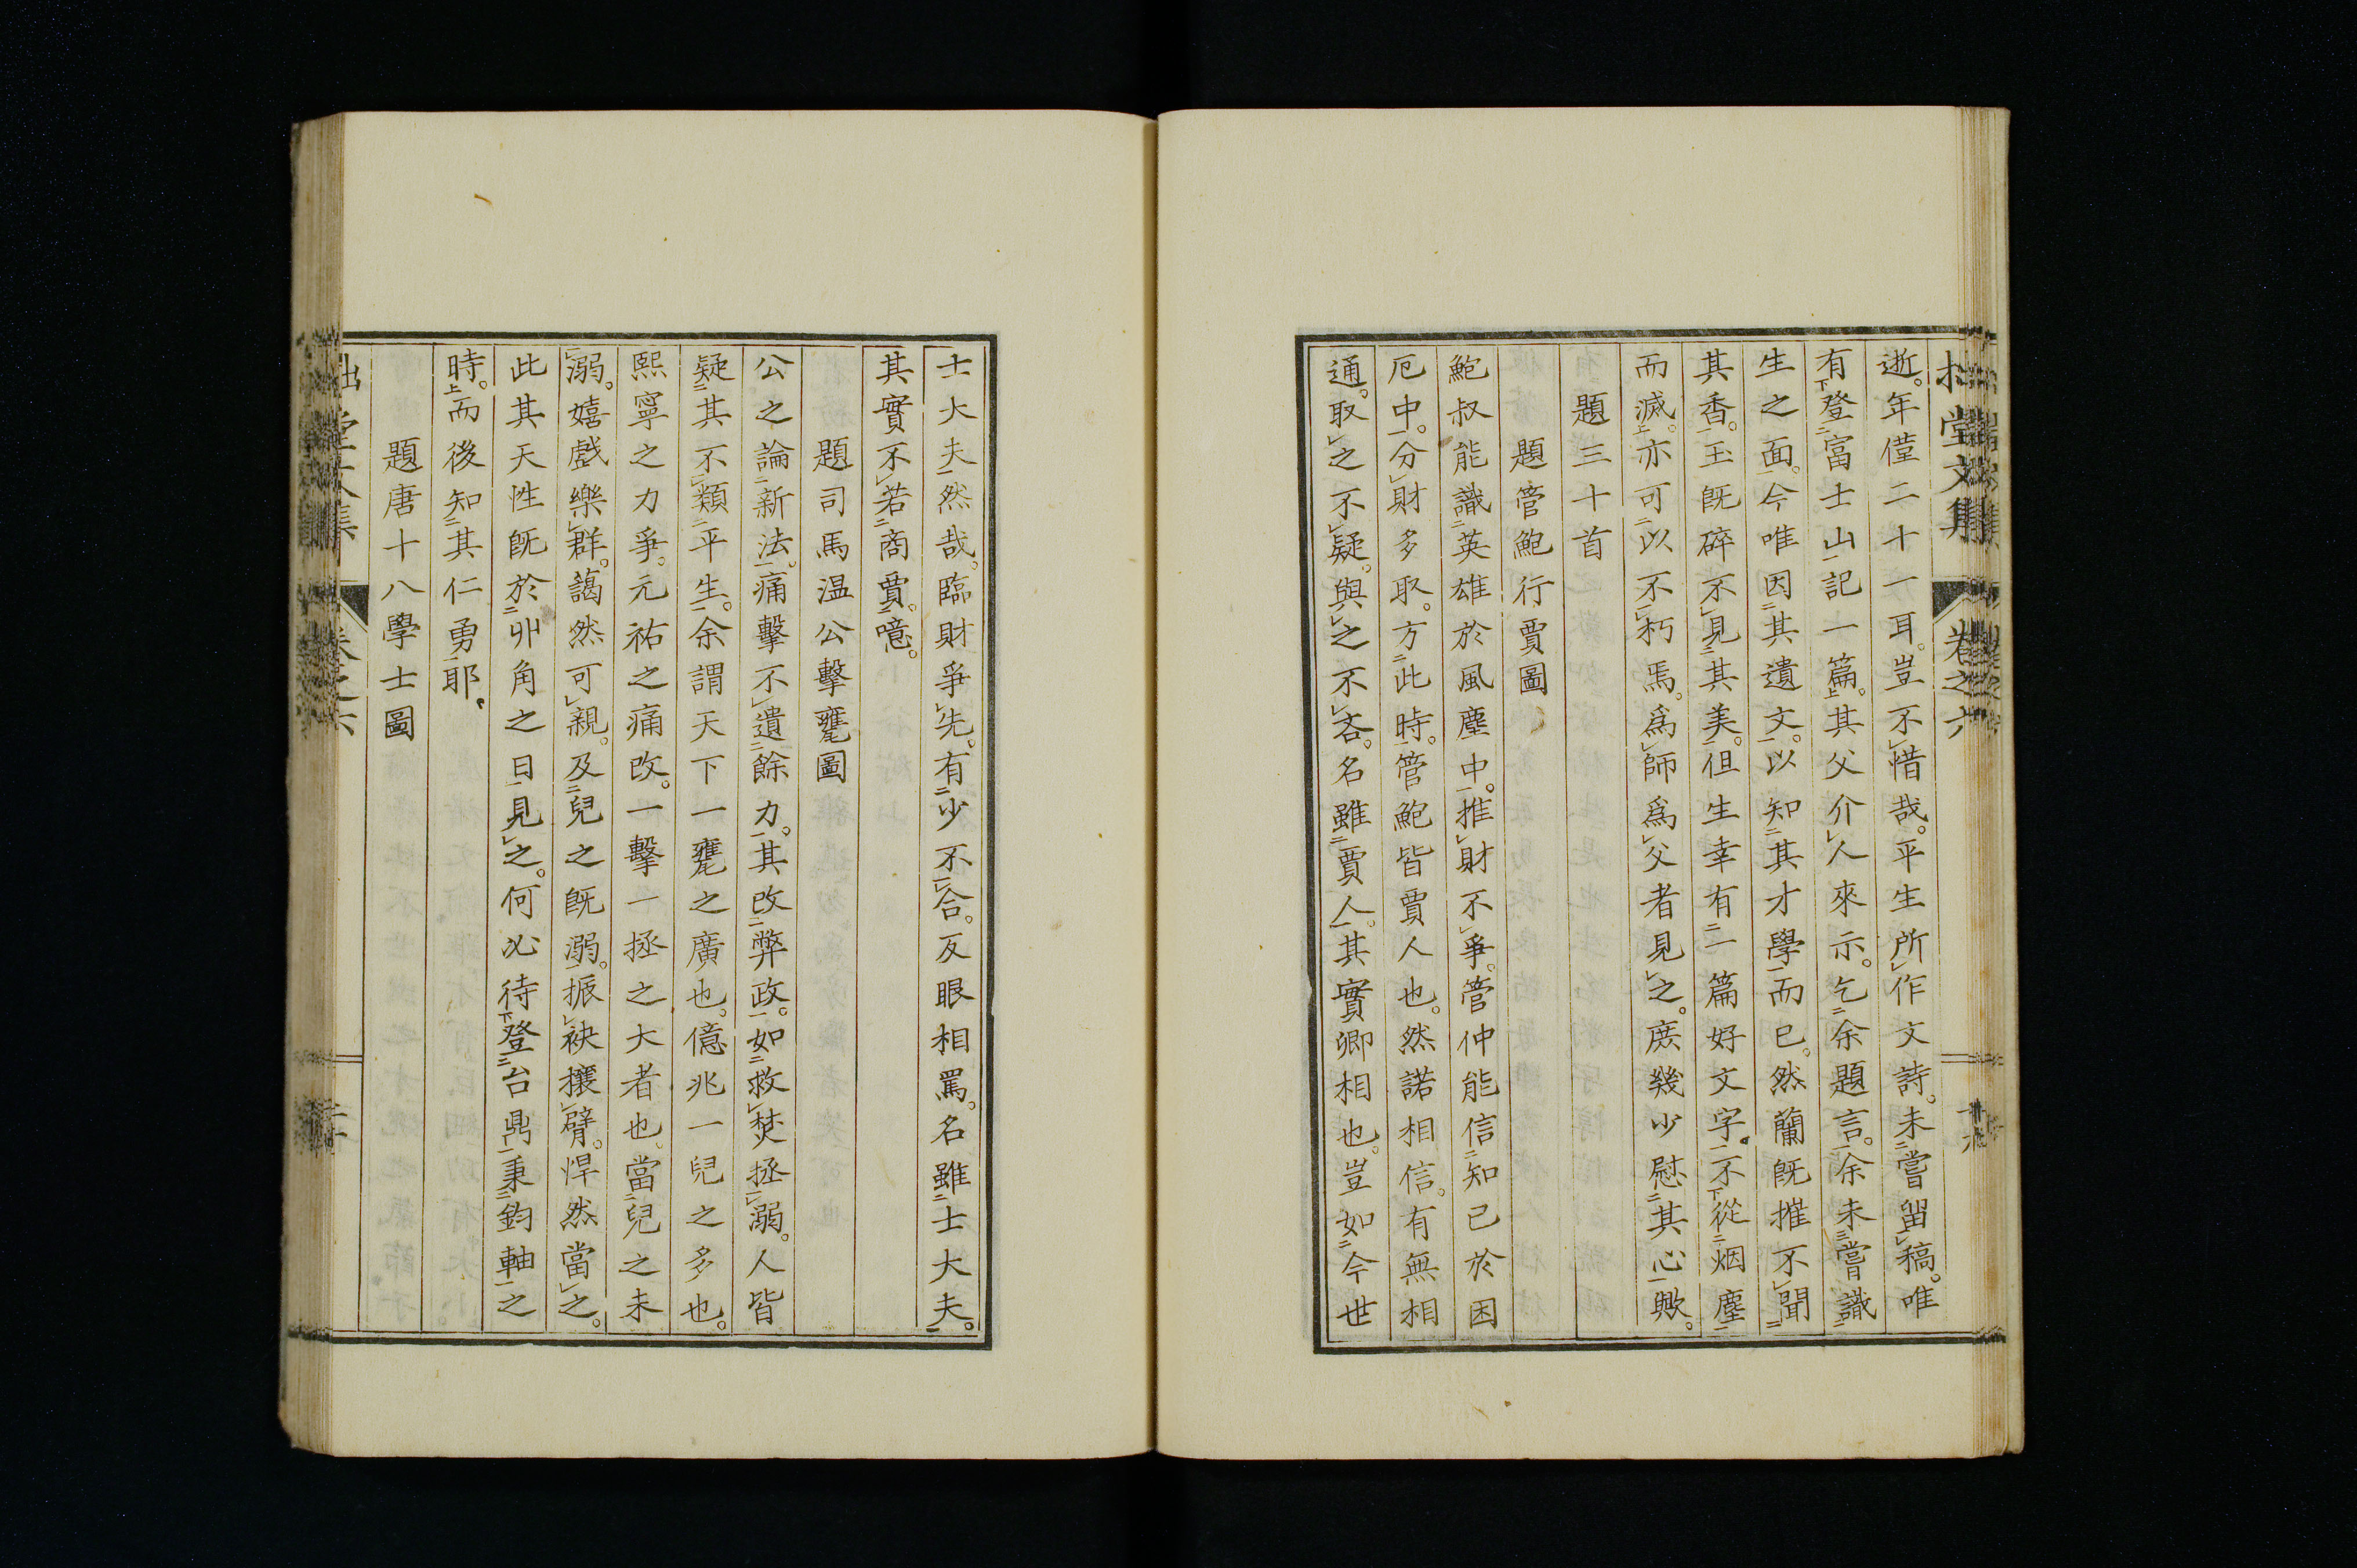 拙堂文集 卷之六 十九
逝。年僅二十一耳。豈不惜哉。平生所作文詩。未嘗留稿。唯
有登富士山記一篇。其父介人來示。乞余題言。余未嘗識
生之面。今唯因其遺文。以知其才學而已。然蘭既摧不聞
其香。玉既碎不見其美。但生幸有一篇好文字。不從烟塵
而滅。亦可以不朽焉。爲師爲父者見之。庶幾少慰其心歟。
題三十首
題管鮑行賈圖
鮑叔能識英雄於風塵中。推財不爭。管仲能信知己於困
厄中。分財多取。方此時。管鮑皆賈人也。然諾相信。有無相
通。取之不疑。與之不吝。名雖賈人。其實卿相也。豈如今世
士大夫然哉。臨財爭先。有少不合。反眼相罵。名雖士大夫。
其實不若商賈。噫。
題司馬温公擊甕圖
公之論新法。痛擊不遺餘力。其改弊政。如救焚拯溺。人皆
疑其不類平生。余謂天下一甕之廣也。億兆一兒之多也。
熙寧之力爭。元祐之痛改。一擊一拯之大者也。當兒之未
溺。嬉戲樂群。藹然可親。及兒之既溺。振袂攘臂。悍然當之。
此其天性既於丱角之日見之。何必待登台鼎秉鈞軸之
時。而後知其仁勇耶。
題唐十八學士圖
拙堂文集 卷之六